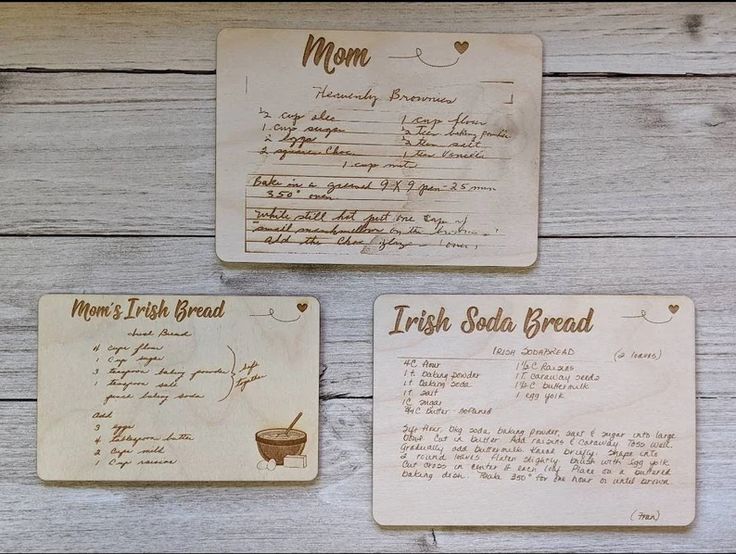 Mom
Heavenly Brownies
1/2 cup oleo
1 cup sugar
2 eggs
2 squares Choc
1 cup flour
1/2 tea baking powder
1/2 tea salt
1 tea Vanilla
1 cup nuts
Bake in a greased 9 X 9 pan - 25 min
350° oven
While still hot put one cup of
small marshmallows on the brownies
add the Choc glaze over
Mom's Irish Bread
Irish Bread
4 Cups flour
1 Cup sugar
3 teaspoon baking powder
1 teaspoon salt
pinch baking soda
sift
together
Add
3 eggs
4 tablespoon butter
2 Cups milk
1 Cup raisins
Irish Soda Bread
IRISH SODABREAD
(2 loaves)
4C flour
1 t baking powder
1 t baking soda
1 t salt
1C sugar
3/4C butter - softened
1 1/2 C Raisins
1T caraway seeds
1 1/2 C buttermilk
1 egg yolk
Sift flour, bkg soda, baking powder, salt & sugar into large
bowl. Cut in butter. Add raisins & caraway. Toss well.
Gradually add buttermilk. Knead briefly. Shape into
2 round loaves. Flatten slightly. brush with egg yolk
Cut cross in center of each loaf. Place on a buttered
baking dish. Bake 350° for one hour or until brown
(Fran)